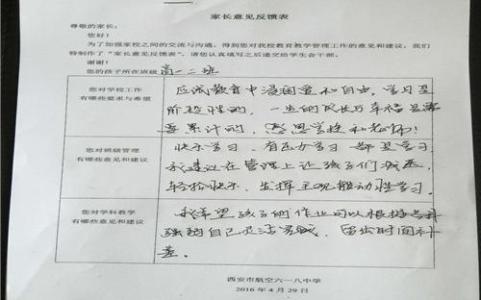 家长意见反馈表
尊敬的家长：
您好！
为了加强家校之间的交流与沟通，得到您对我校教育教学管理工作的意见和建议，我们
特制作了“家长意见反馈表”，请您认真填写之后递交给学生会干部。
谢谢！
您的孩子所在班级 高一二班
您对学校工作
有哪些要求与希望
应试教育中浸润温和自由，学习是
阶段性的，一生的成长与幸福是需
要累计的，感恩学校和老师！
您对班级管理
有哪些意见和建议
快乐学习，有压力学习 都是学习
我建议在管理上让孩子们减压，
轻松快乐，发挥主观能动性学习。
您对学科教学
有哪些意见和建议
我希望孩子的作业可以根据
强弱自己灵活完成，留出时间补
差。
西安市航空六一八中学
2016年4月29日